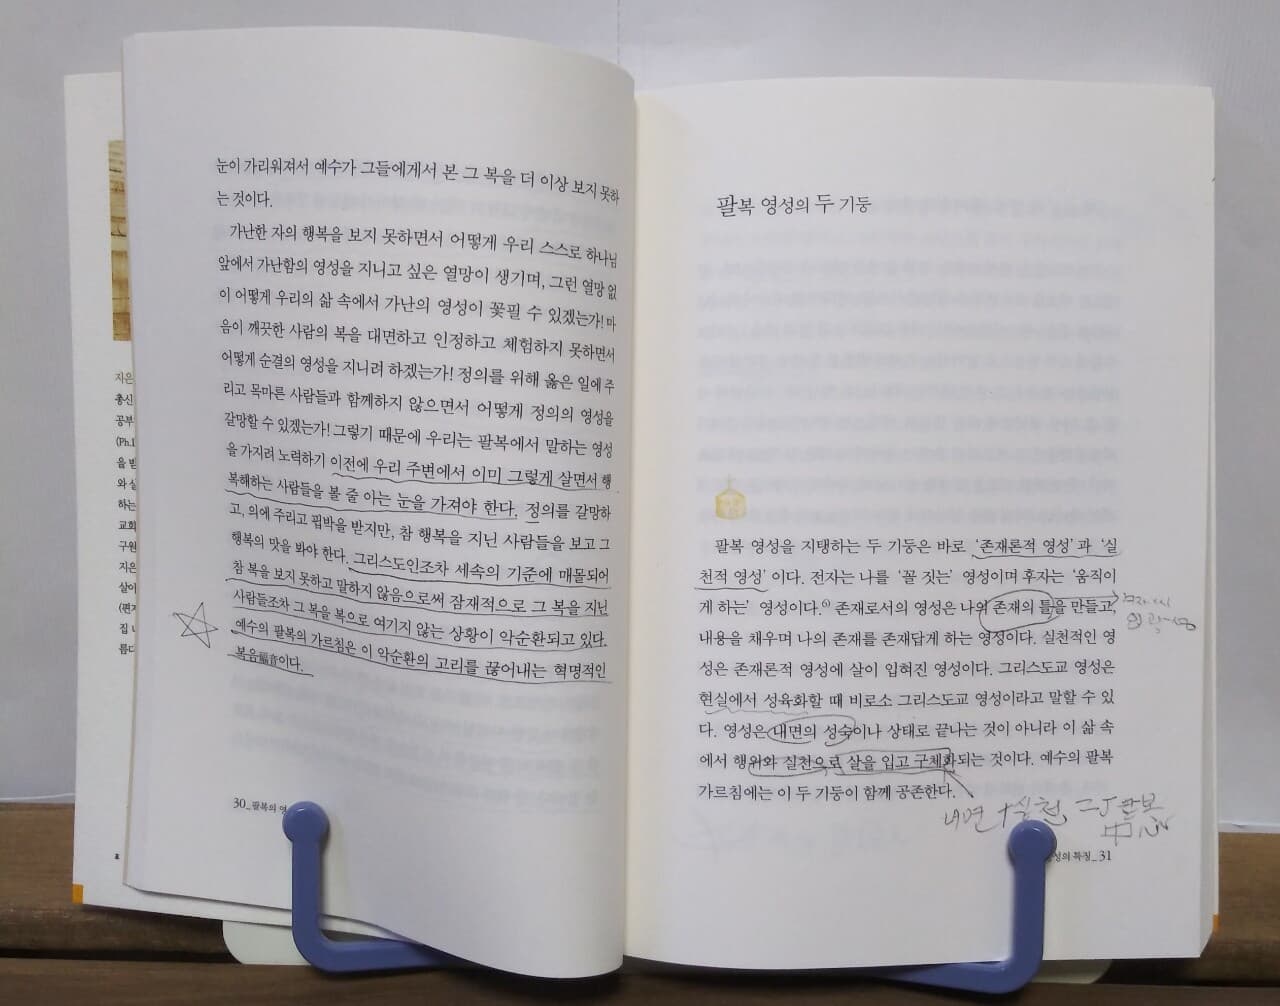 눈이 가리워져서 예수가 그들에게서 본 그 복을 더 이상 보지 못하
는 것이다.
가난한 자의 행복을 보지 못하면서 어떻게 우리 스스로 하나님
앞에서 가난함의 영성을 지니고 싶은 열망이 생기며, 그런 열망 없
이 어떻게 우리의 삶 속에서 가난의 영성이 꽃필 수 있겠는가! 마
음이 깨끗한 사람의 복을 대면하고 인정하고 체험하지 못하면서
어떻게 순결의 영성을 지니려 하겠는가! 정의를 위해 옳은 일에 주
리고 목마른 사람들과 함께하지 않으면서 어떻게 정의의 영성을
갈망할 수 있겠는가! 그렇기 때문에 우리는 팔복에서 말하는 영성
을 가지려 노력하기 이전에 우리 주변에서 이미 그렇게 살면서 행
복해하는 사람들을 볼 줄 아는 눈을 가져야 한다. 정의를 갈망하
고, 의에 주리고 핍박을 받지만, 참 행복을 지닌 사람들을 보고 그
행복의 맛을 봐야 한다. 그리스도인조차 세속의 기준에 매몰되어
참 복을 보지 못하고 말하지 않음으로써 잠재적으로 그 복을 지닌
사람들조차 그 복을 복으로 여기지 않는 상황이 악순환되고 있다.
예수의 팔복의 가르침은 이 악순환의 고리를 끊어내는 혁명적인
복음福音이다.
30_팔복의 영
지은
총신
공부
(Ph.D
을 받
와 실
하는
교회
구원
지은
살아
(편저
집 
름다
팔복 영성의 두 기둥
팔복 영성을 지탱하는 두 기둥은 바로 ‘존재론적 영성’과 ‘실
천적 영성’이다. 전자는 나를 ‘꼴 짓는’ 영성이며 후자는 ‘움직이
게 하는’ 영성이다. 존재로서의 영성은 나의 존재의 틀을 만들고,
내용을 채우며 나의 존재를 존재답게 하는 영성이다. 실천적인 영
성은 존재론적 영성에 살이 입혀진 영성이다. 그리스도교 영성은
현실에서 성육화할 때 비로소 그리스도교 영성이라고 말할 수 있
다. 영성은 내면의 성숙이나 상태로 끝나는 것이 아니라 이 삶 속
에서 행위와 실천으로 살을 입고 구체화되는 것이다. 예수의 팔복
가르침에는 이 두 기둥이 함께 공존한다.
내면 + 실천 팔복
中心
성의 특징_31